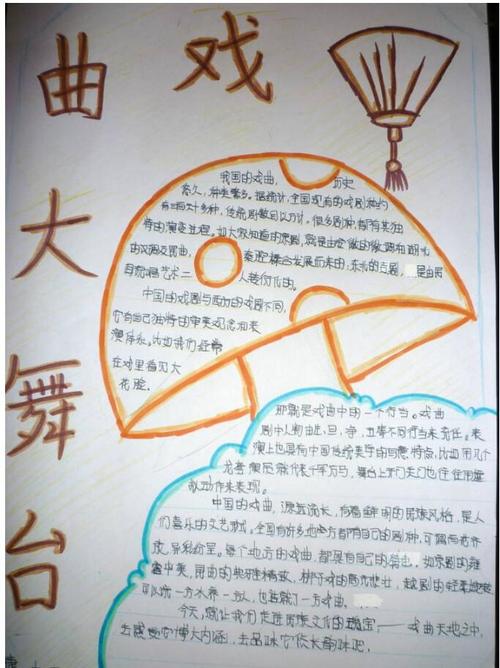 戏
曲
大
舞
台
我国的戏曲，历史
悠久，种类繁多。据统计，全国现有的戏剧种约
有三百六十多种，传统剧数目以万计。很多剧种，都有其独
特的演变过程。如大家知道的京剧，就是由安徽的徽调和湖北
的汉调及昆曲，秦腔糅合发展而来的；东北的吉剧，是由民
间歌唱艺术二人转衍化的。
中国的戏剧与西方的戏剧不同，
它有自己独特的审美观念和表
演体系。比如我们经常
在戏里看见大
花脸，
那就是戏曲中的一个行当。戏曲
剧中人物由生，旦，净，丑等不同行当来充任。表
演上也具有中国传统美学的写意特点，比如用几个
龙套演员就代表千军万马，舞台上开门关门也往往用虚
拟动作来表现。
中国的戏曲，源远流长，有着鲜明的民族风格，是人
们喜乐的文艺形式。全国有许多地方都有自己的剧种，可谓百花齐
放，异彩纷呈。每个地方的戏曲，都具有自己的，如京剧的雍
容中美，昆曲的典雅精致，梆子戏的高亢悲壮，越剧的轻柔婉转
可以说一方水养一方人，也造就了一方戏曲。
今天，就让我们走进民族文化的瑰宝——戏曲天地之中，
去感受它博大内涵，去品味它悠长韵味吧。